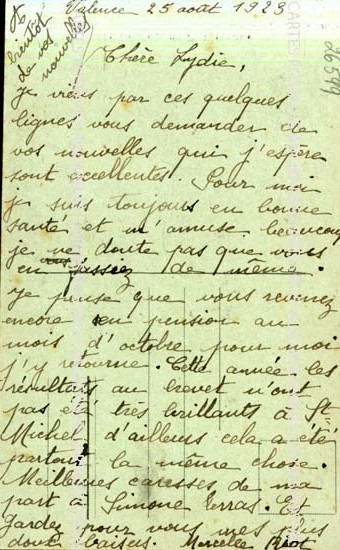 A
bientôt
de vos
nouvelles
Valence 25 août 1923
Chère Lydie,
je viens par ces quelques
lignes vous demander de
vos nouvelles qui j'espère
sont excellentes. Pour moi
je suis toujours en bonne
santé et m'amuse beaucoup
je ne doute pas que vous
en fassiez de même.
Je pense que vous revenez
encore en pension au
mois d'octobre pour moi
j'y retourne. Cette année les
résultats au brevet n'ont
pas été très brillants à St
Michel d'ailleurs cela a été
partout la même chose.
Meilleures caresses de ma
part à Simone Terras. Et
gardez pour vous mes plus
doux baisers. Marcelle
CARTES